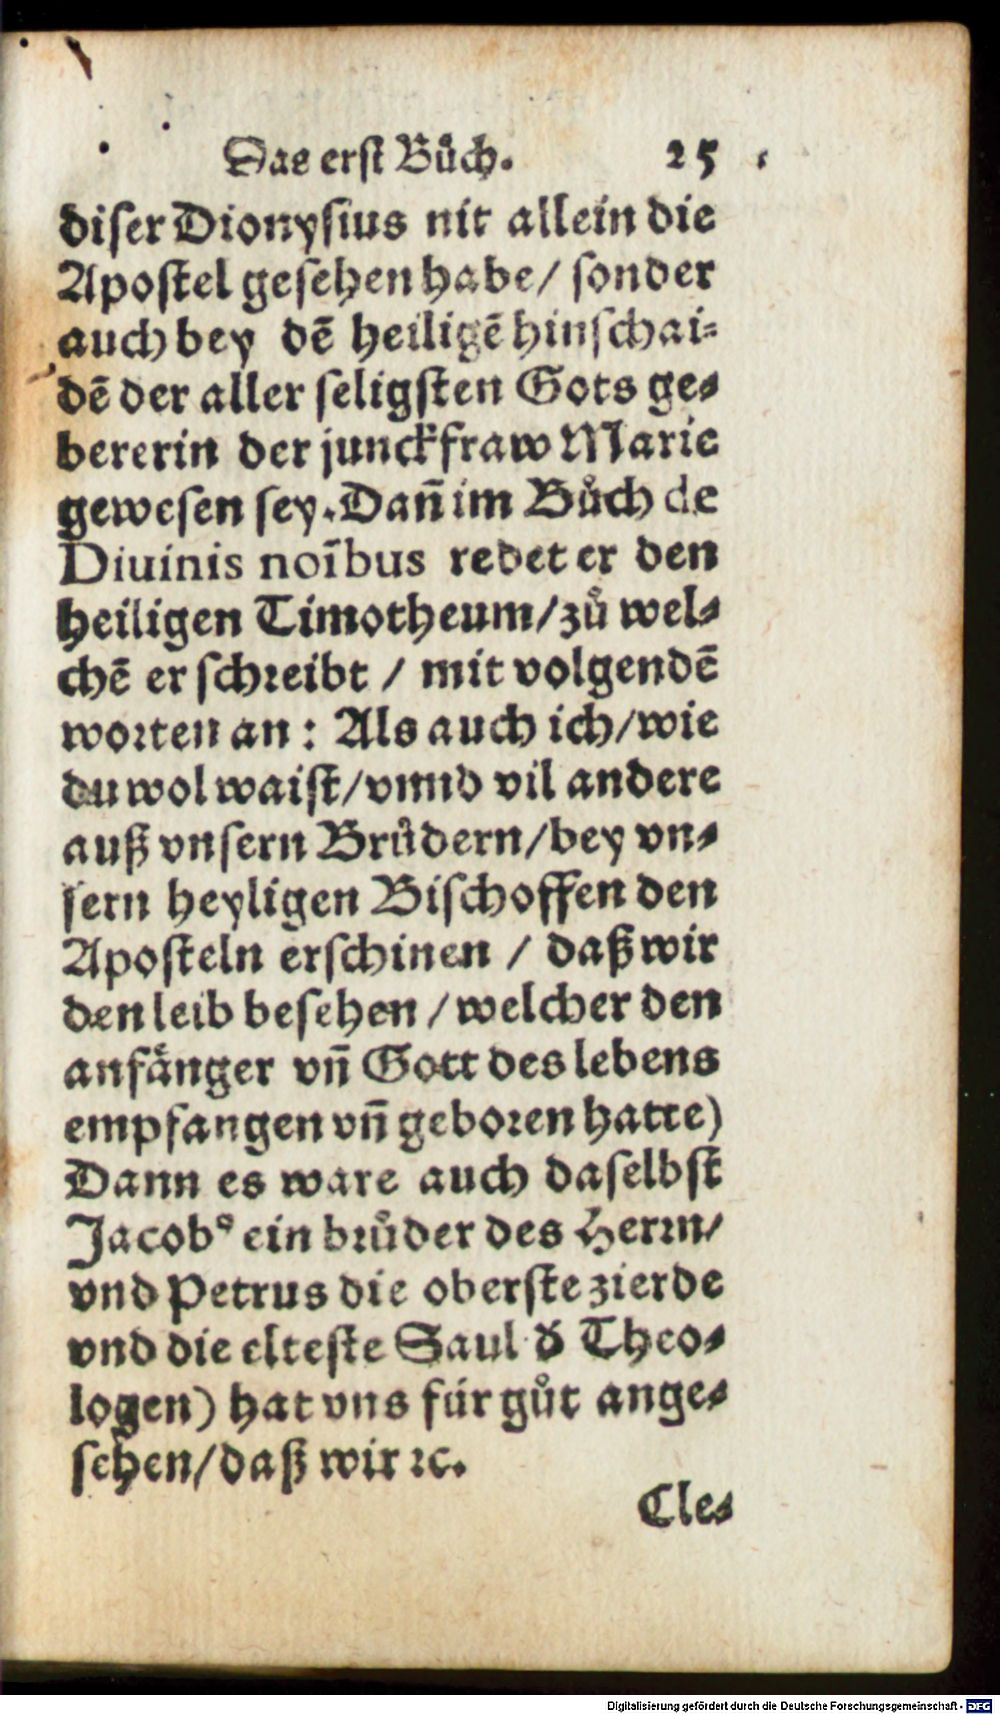 Das erst Bůch. 25
diser Dionysius nit allein die
Apostel gesehen habe/ sonder
auch bey dē heiligē hinschai-
dē der aller seligsten Gots ge-
bererin der junckfraw Marie
gewesen sey. Dañ im Bůch de
Diuinis noībus redet er den
heiligen Timotheum/zů wel-
chē er schreibt / mit volgendē
worten an : Als auch ich/wie
du wol waist/vnnd vil andere
auß vnsern Brůdern/bey vn-
sern heyligen Bischoffen den
Aposteln erschinen / daß wir
den leib besehen / welcher den
anfånger vñ Gott des lebens
empfangen vñ geboren hatte)
Dann es ware auch daselbst
Jacobꝰ ein brůder des Herrn/
vnd Petrus die oberste zierde
vnd die elteste Saul d̄ Theo-
logen) hat vns für gůt ange-
sehen/daß wir ꝛc.
Cle-
Digitalisierung gefördert durch die Deutsche Forschungsgemeinschaft - DFG